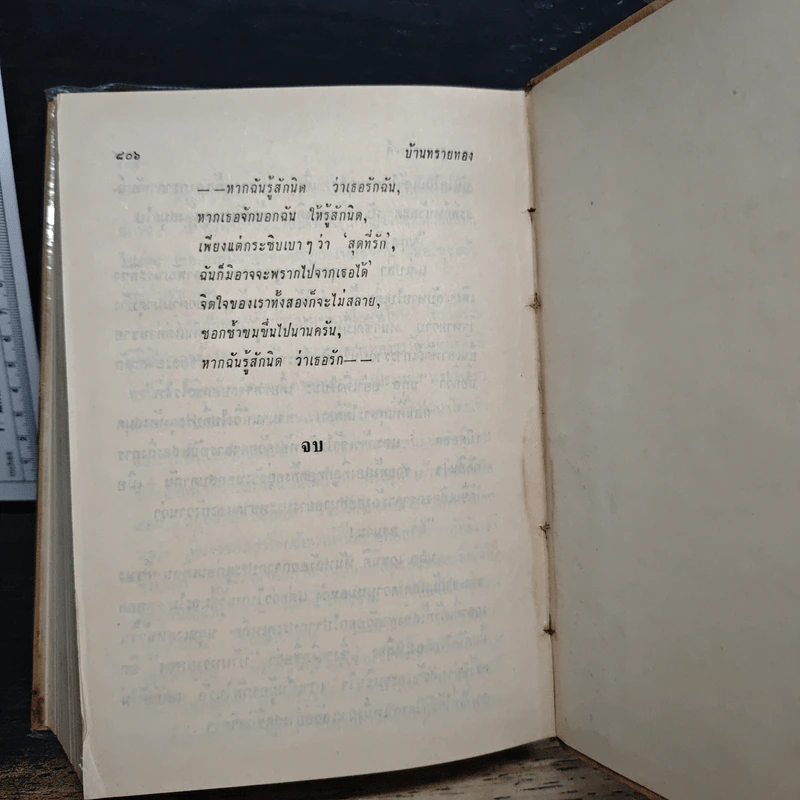 ๔๐๖ บ้านทรายทอง
— —หากฉันรู้สักนิด ว่าเธอรักฉัน,
หากเธอจักบอกฉัน ให้รู้สักนิด,
เพียงแต่กระซิบเบา ๆ ว่า ‘สุดที่รัก’,
ฉันก็มิอาจจะพรากไปจากเธอได้
จิตใจของเราทั้งสองก็จะไม่สลาย,
ชอกช้ำขมขื่นไปนานครัน,
หากฉันรู้สักนิด ว่าเธอรัก— —
จบ